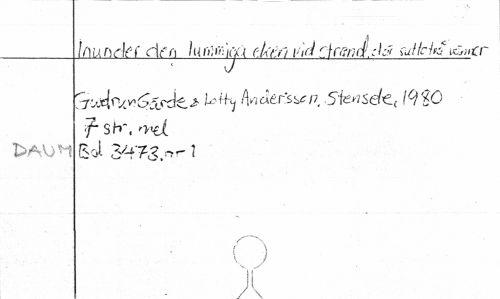 Inunder den lummiga eken vid strand, där suttо två vänner
Gudrun Gärde & Lotty Andersson, Stensele, 1980
7 str. mel
DAUM Bd 3473, nr 1